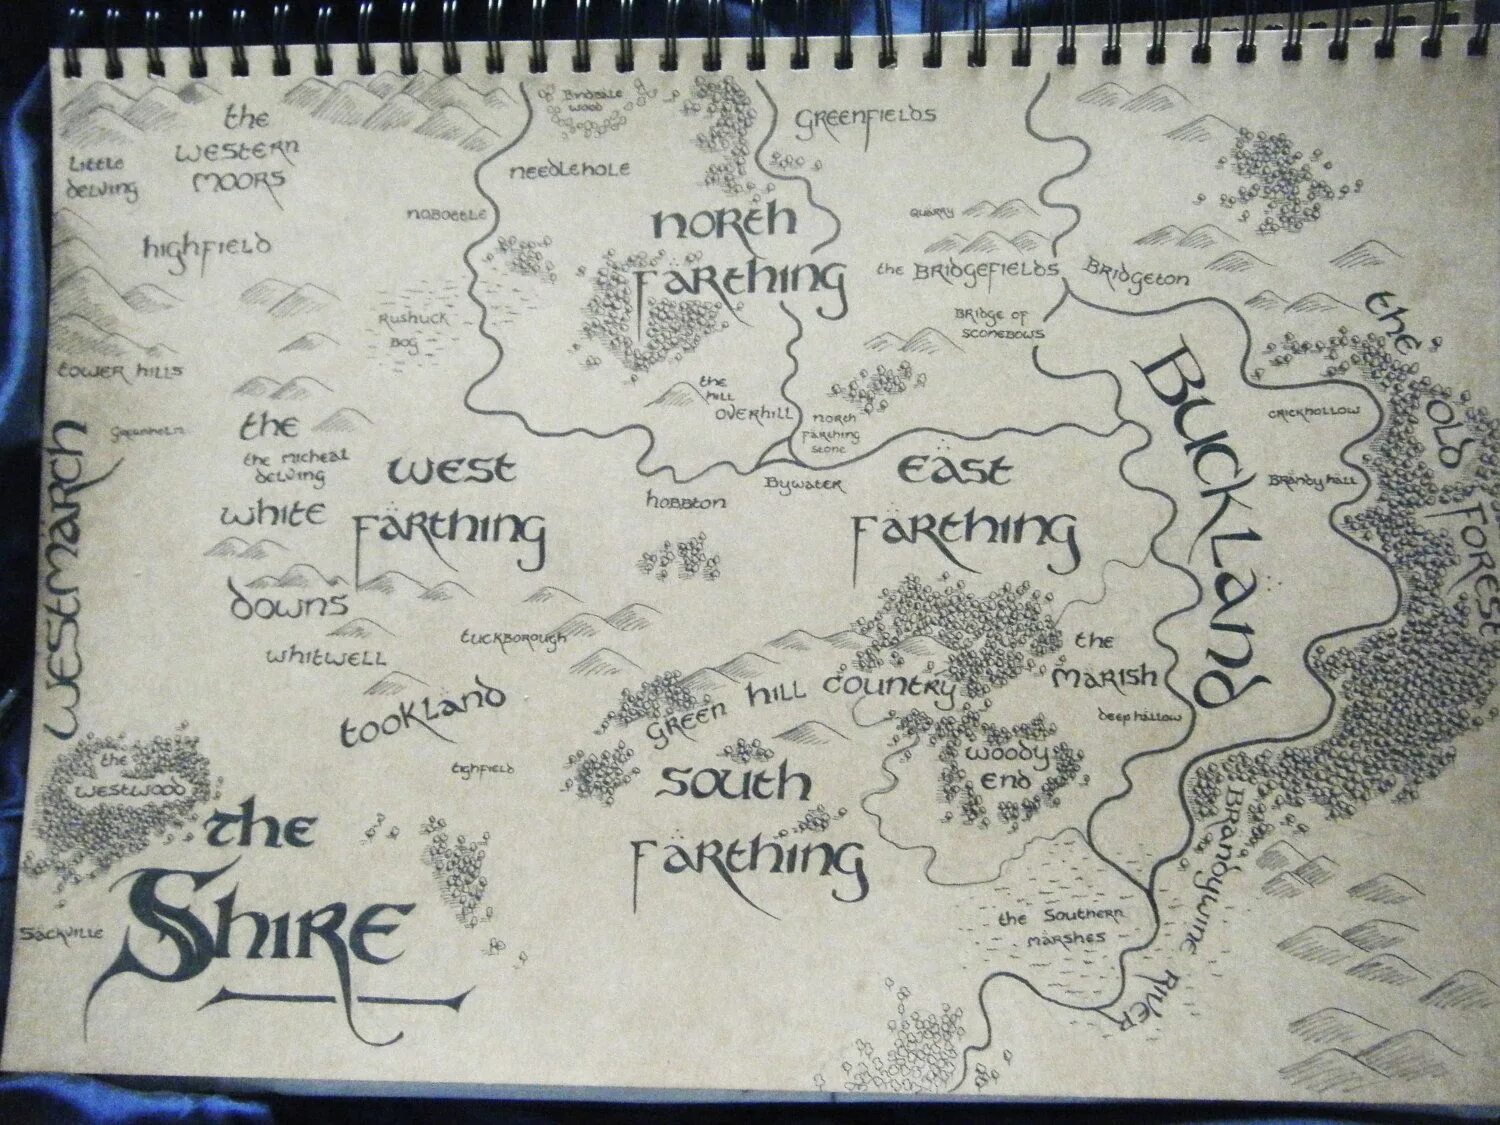 the
Western
Moors
Little
Delving
Bindbale
Wood
Needlehole
Greenfields
Nobottle
North
Farthing
Quarry
the Bridgefields
Bridgeton
Highfield
Rushock
Bog
Bridge of
Stonebows
the
Old
Forest
Tower Hills
the
Hill
Overhill
North
Farthing
Stone
Buckland
Crickhollow
the
the Micheal
Delving
White
Downs
West
Farthing
East
Farthing
Hobbton
Bywater
Brandy Hall
Westmarch
Tuckborough
Whitwell
Tookland
Green Hill Country
the
Marish
Deephallow
Woody
End
Tighfield
South
Farthing
the
Westwood
the
Shire
Sackville
the Southern
Marshes
Brandywine River